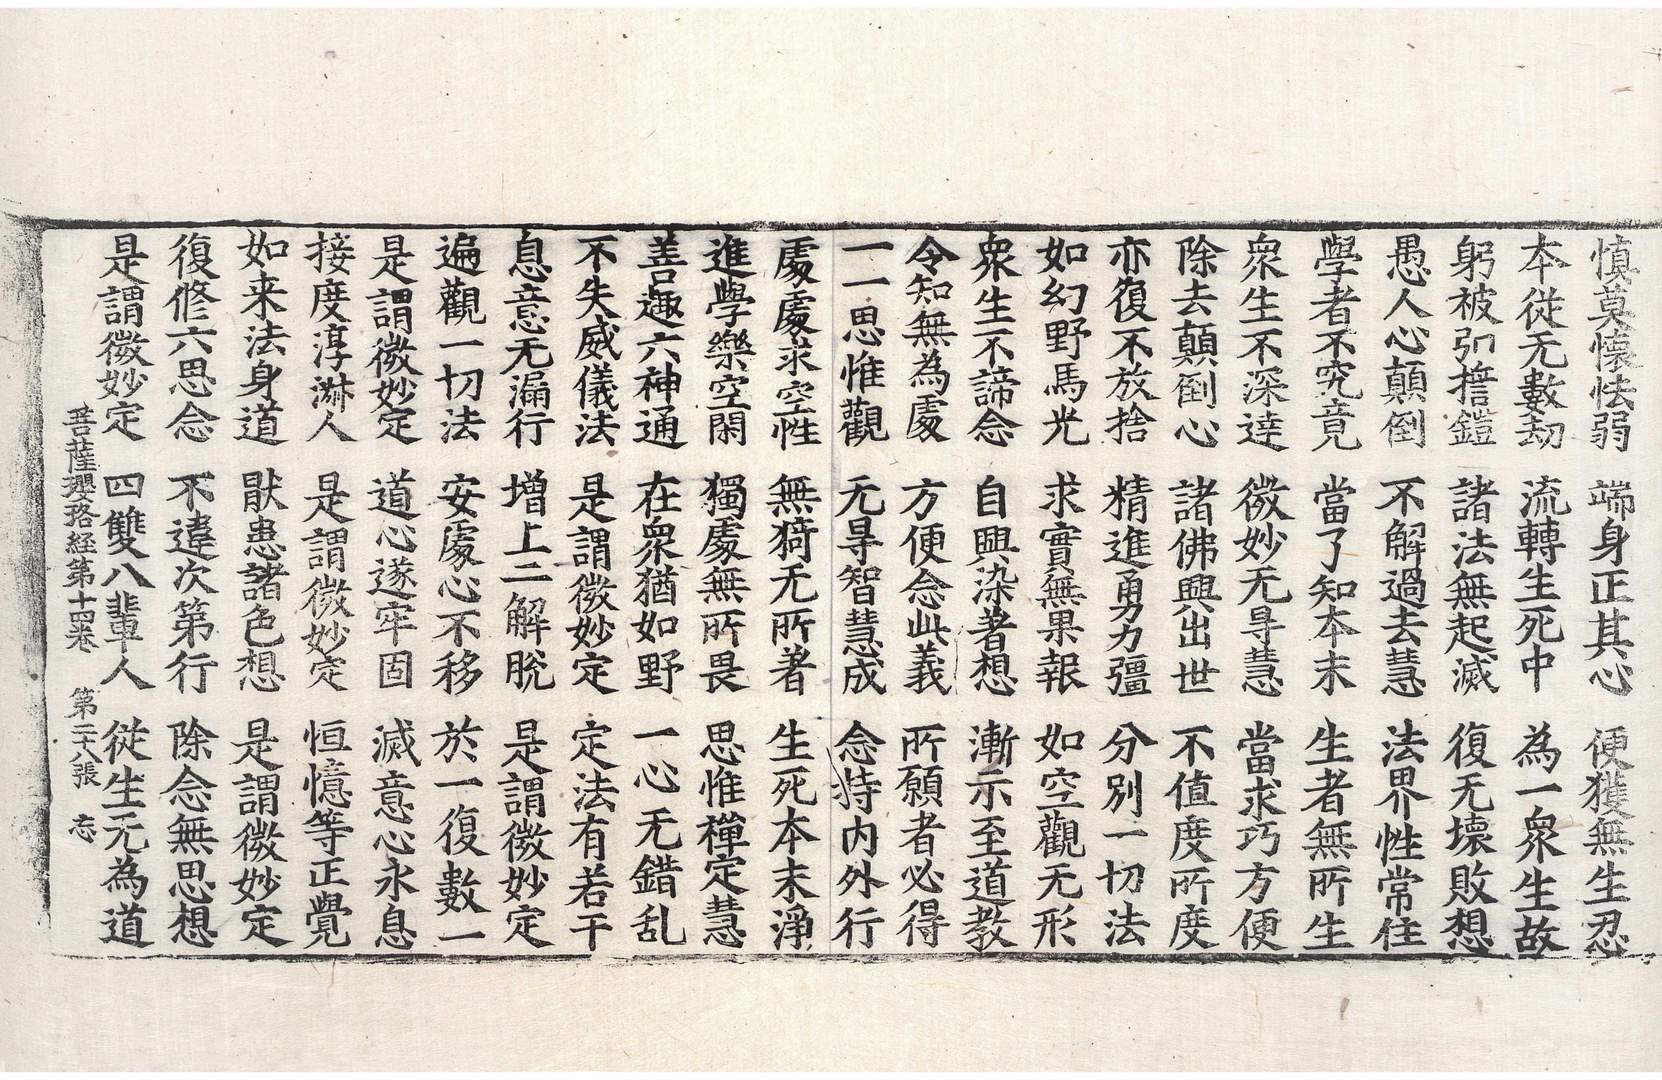 慎莫懷怯弱 端身正其心 便獲無生忍
本從无數劫 流轉生死中 為一衆生故
躬被弘擔鎧 諸法無起滅 復无壞敗想
愚人心顛倒 不解過去慧 法界性常住
學者不究竟 當了知本末 生者無所生
衆生不深達 微妙无㝵慧 當求巧方便
除去顛倒心 諸佛興出世 不值度所度
亦復不放捨 精進勇力彊 分別一切法
如幻野馬光 求實無果報 如空觀无形
衆生不諦念 自興染著想 漸示至道教
令知無為處 方便念此義 所願者必得
一一思惟觀 无㝵智慧成 念持内外行
處處求空性 無猗无所著 生死本末淨
進學樂空閑 獨處無所畏 思惟禪定慧
善趣六神通 在衆猶如野 一心无錯乱
不失威儀法 是謂微妙定 定法有若干
息意无漏行 增上二解脫 是謂微妙定
遍觀一切法 安處心不移 於一復數一
是謂微妙定 道心遂牢固 滅意心永息
接度淳淋人 是謂微妙定 恒憶等正覺
如来法身道 猒患諸色想 是謂微妙定
復修六思念 不違次第行 除念無思想
是謂微妙定 四雙八輩人 從生无為道
菩薩瓔珞経第十四卷 第二十八張 忘